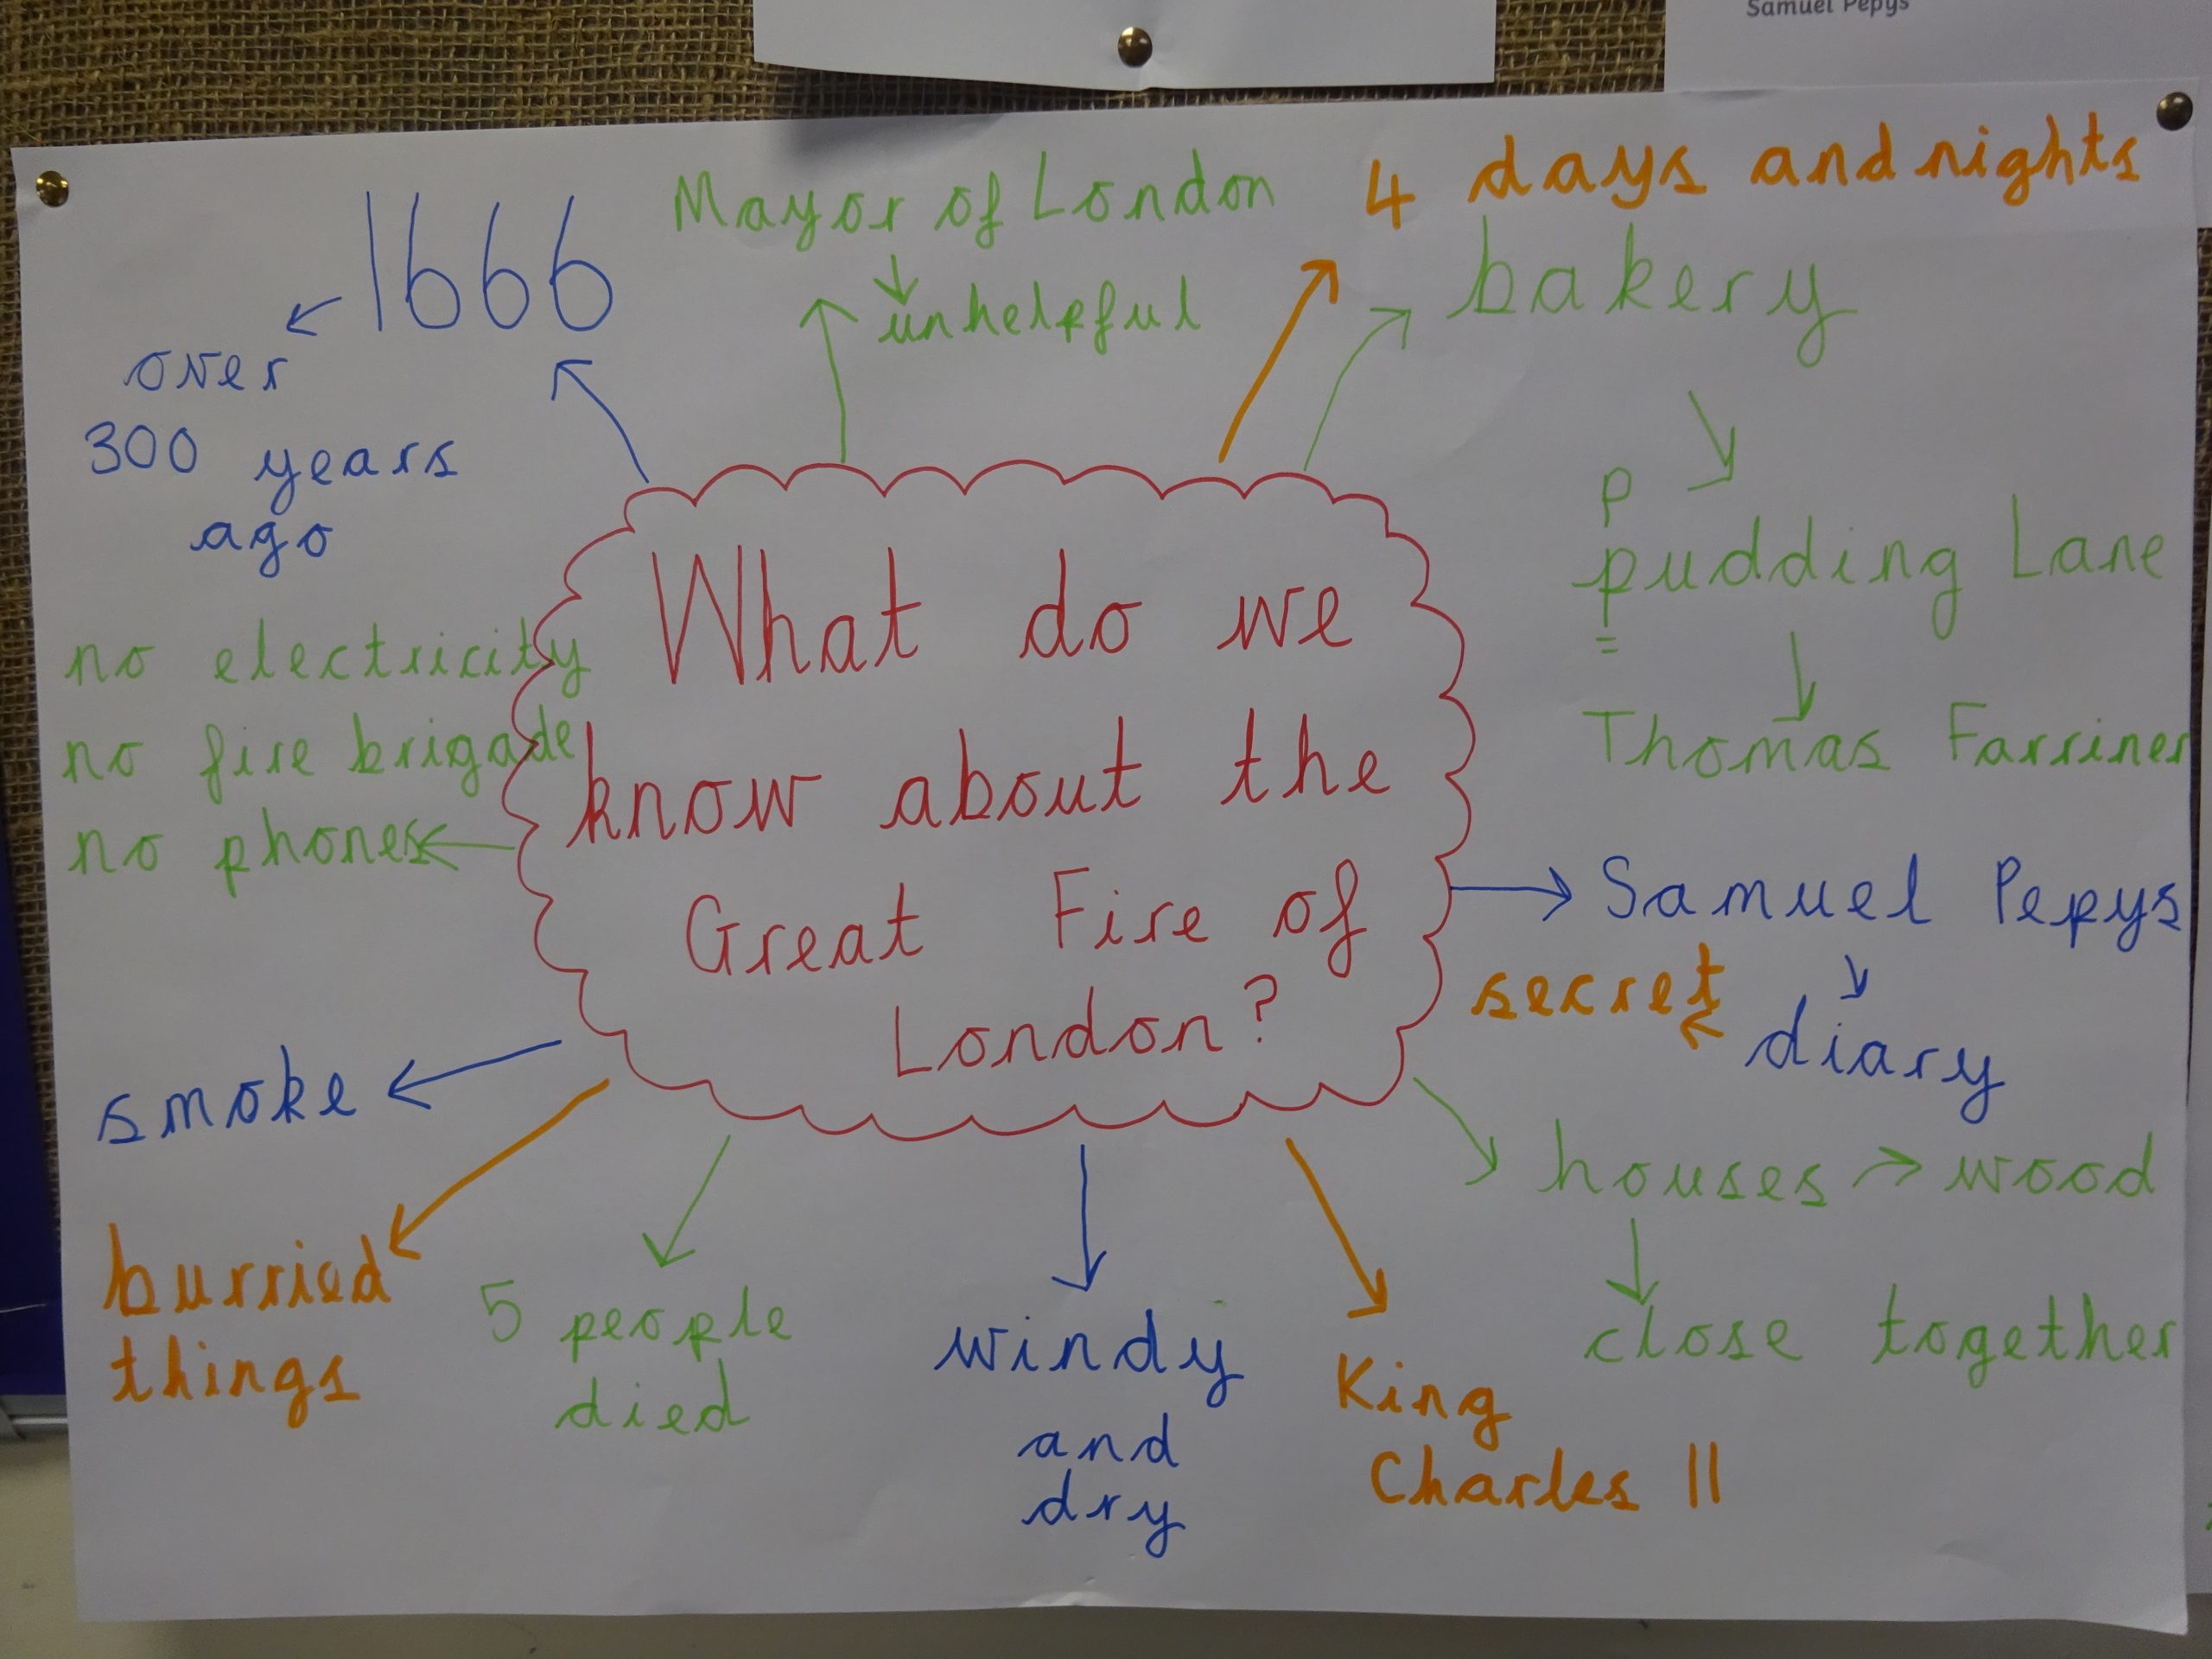 Samuel Pepys
1666
over
300 years
ago
Mayor of London
unhelpful
4 days and nights
bakery
P
pudding Lane
Thomas Farriner
What do we
know about the
Great Fire of
London?
no electricity
no fire brigade
no phones
Samuel Pepys
diary
secret
houses → wood
close together
smoke
burried
things
5 people
died
windy
and
dry
King
Charles II